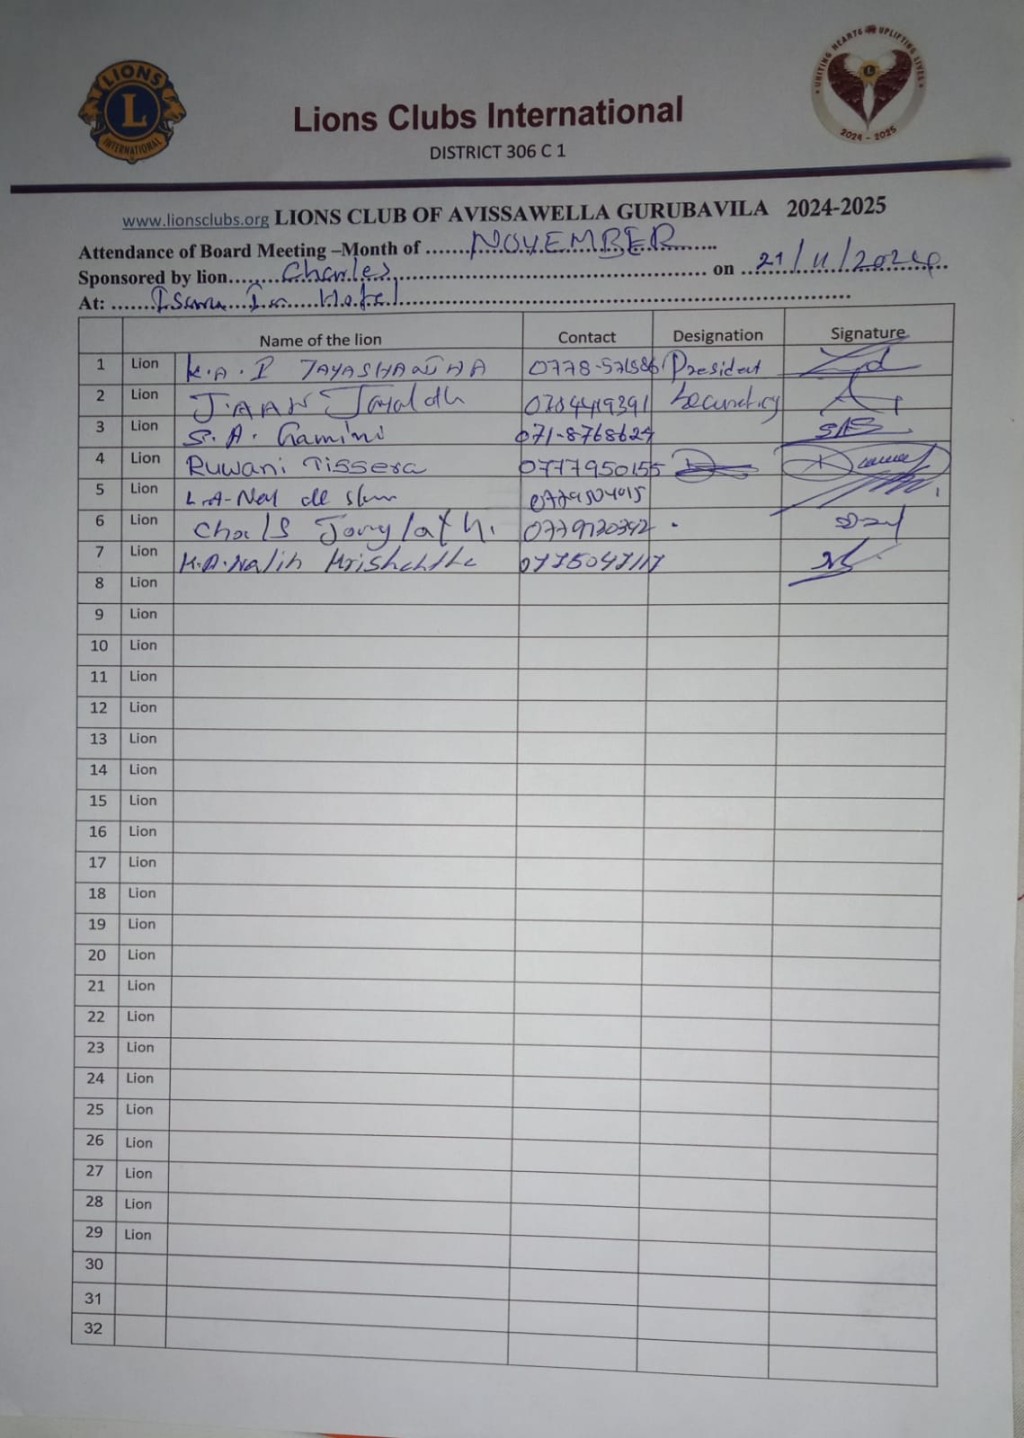 LIONS
L
INTERNATIONAL
UNITING HEARTS UPLIFTING LIVES
2024 - 2025
Lions Clubs International
DISTRICT 306 C 1
www.lionsclubs.org LIONS CLUB OF AVISSAWELLA GURUBAVILA 2024-2025
Attendance of Board Meeting –Month of ......NOVEMBER......
Sponsored by lion......Charles...... on ...21/11/2024...
At: ...... Hotel......
Name of the lion Contact Designation Signature
1 Lion K.A.I JAYASHANTHA President
2 Lion J.AAN 0704419391 Secunetrcy
3 Lion S.A. Gamini 071-8768624
4 Lion Ruwani Tissera 0777950155
5 Lion L.A-Nel de 0779504015
6 Lion 0779720342
7 Lion K.A.Nalin 0775047117
8 Lion
9 Lion
10 Lion
11 Lion
12 Lion
13 Lion
14 Lion
15 Lion
16 Lion
17 Lion
18 Lion
19 Lion
20 Lion
21 Lion
22 Lion
23 Lion
24 Lion
25 Lion
26 Lion
27 Lion
28 Lion
29 Lion
30
31
32